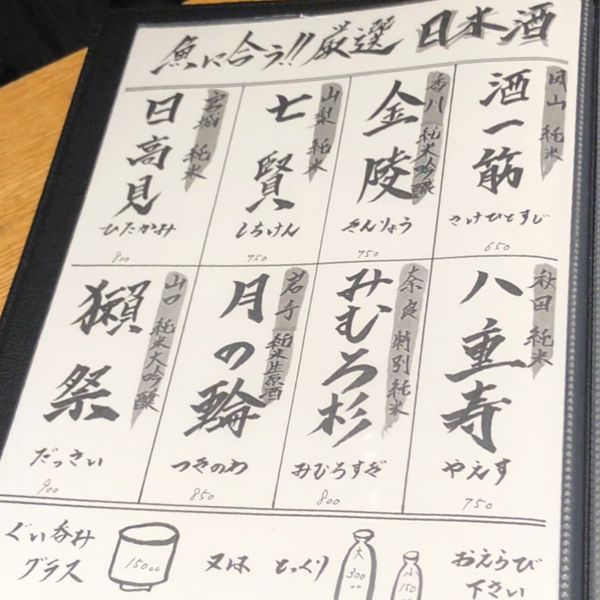 魚に合う!!厳選 日本酒
岡山 純米
酒一筋
さけひとすじ
650
香川 純米吟醸
金陵
きんりょう
750
山梨 純米
七賢
しちけん
750
宮城 純米
日高見
ひたかみ
800
秋田 純米
八重寿
やえす
750
奈良 特別純米
みむろ杉
みむろすぎ
800
岩手 純米生原酒
月の輪
つきのわ
850
山口 純米大吟醸
獺祭
だっさい
900
ぐい呑み
グラス
150cc
又は
とっくり
大
300
cc
小
150
おえらび
下さい